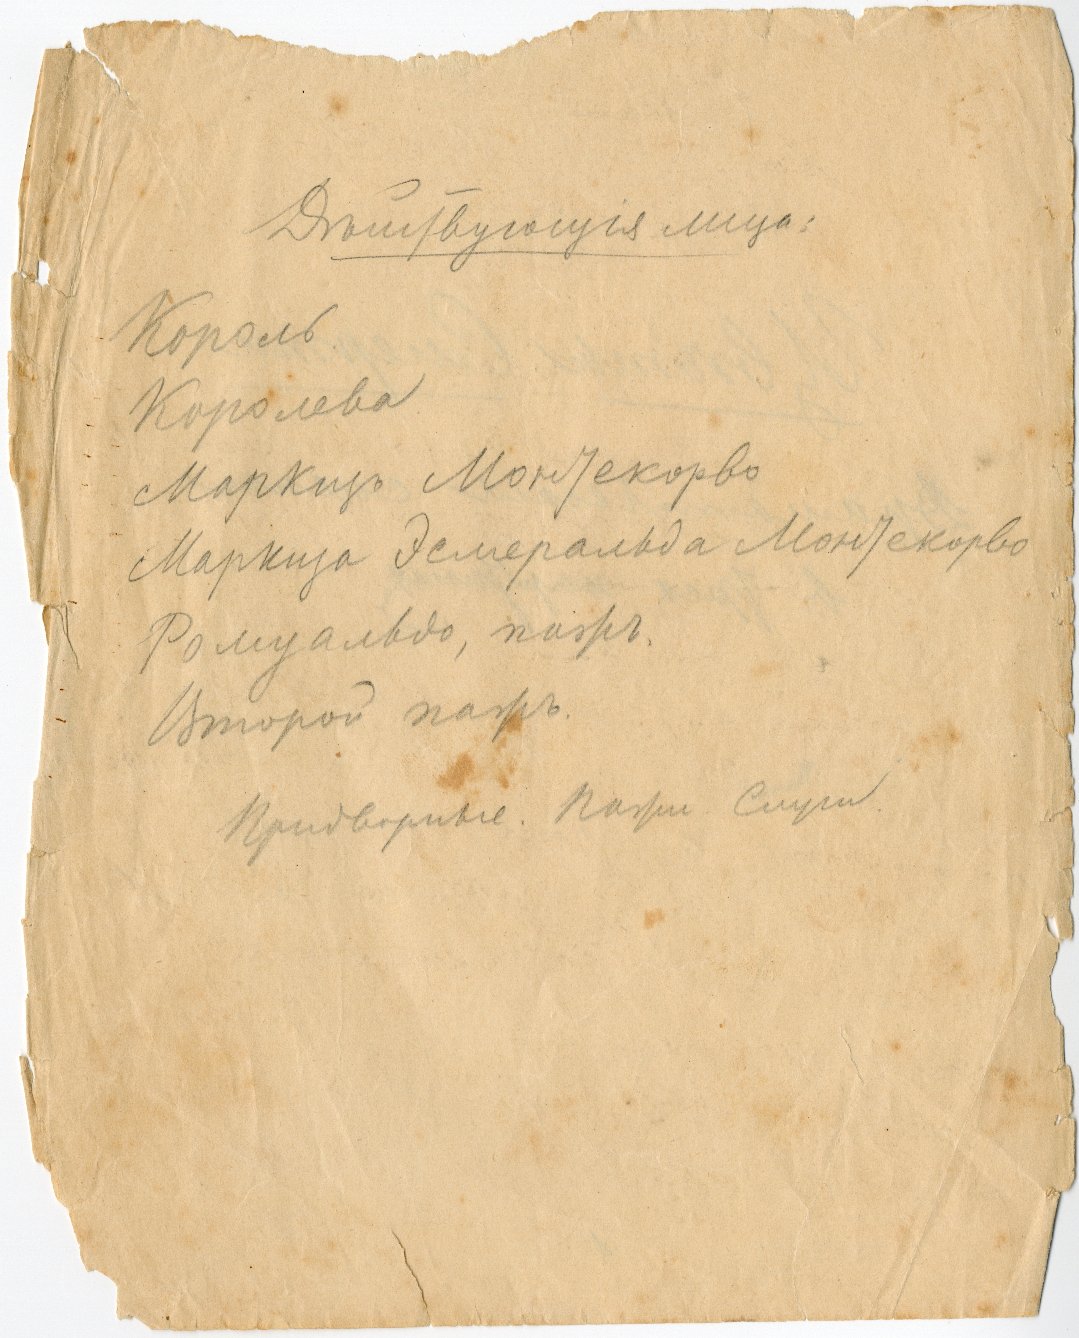 Дѣйствующія лица:
Король
Королева
Маркизъ Монтекорво
Маркиза Эсмеральда Монтекорво
Ромуальдо, пажъ.
Второй пажъ.
Придворные. Пажи. Слуги.